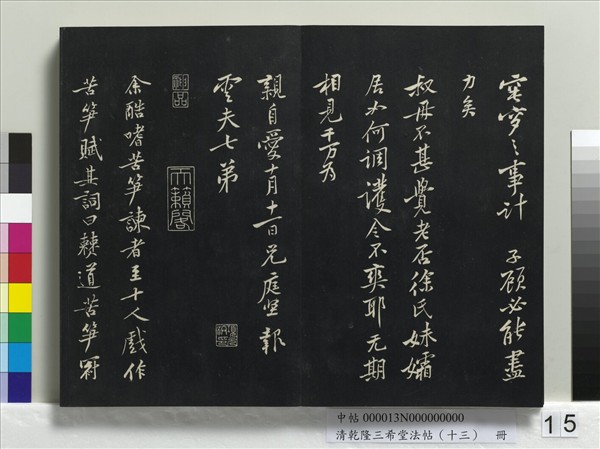 窀穸之事計　子顧必能盡
力矣
叔母不甚覺老否徐氏妹孀
居如何調護令不爽耶无期
相見千万為
親自愛十月十一日兄庭堅報
雲夫七弟
神品
天籟閣
余酷嗜苦筍諫者至十人戲作
苦筍賦其詞曰僰道苦筍冠
中帖 000013N000000000
清乾隆三希堂法帖（十三）　冊
15